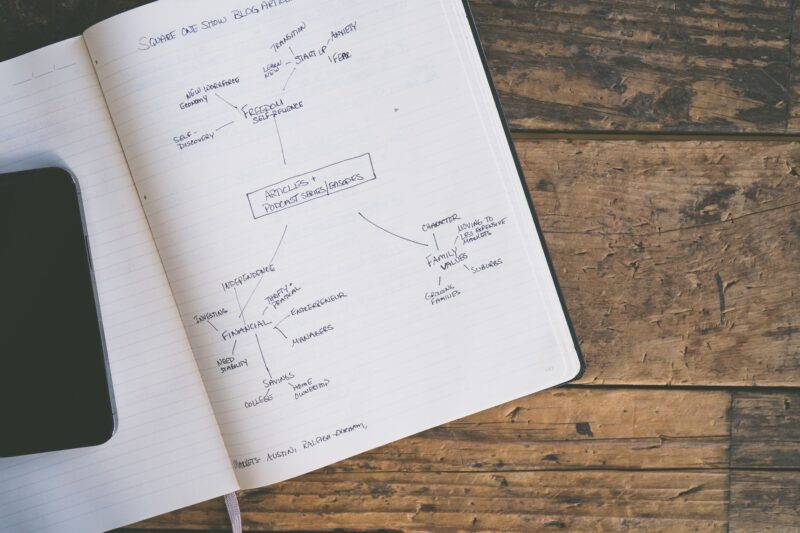 SQUARE ONE SHOW BLOG ARTICLE
TRANSITION
ANXIETY
START UP
FEAR
LEARN
NEW
NEW WORKFORCE
ECONOMY
FREEDOM
SELF-RELIENCE
SELF-
DISCOVERY
ARTICLES +
PODCAST SERIES/EPISODES
CHARACTER
MOVING TO
LESS EXPENSIVE
MARKETS
FAMILY
VALUES
SUBURBS
GROWING
FAMILIES
INDEPENDENCE
THRIFTY +
INVESTING
FINANCIAL
ENTREPRENEUR
MANAGERS
NEED
STABILITY
SAVINGS
COLLEGE
HOME
OWNERSHIP
MARKETS - AUSTIN, RALEIGH-DURHAM,